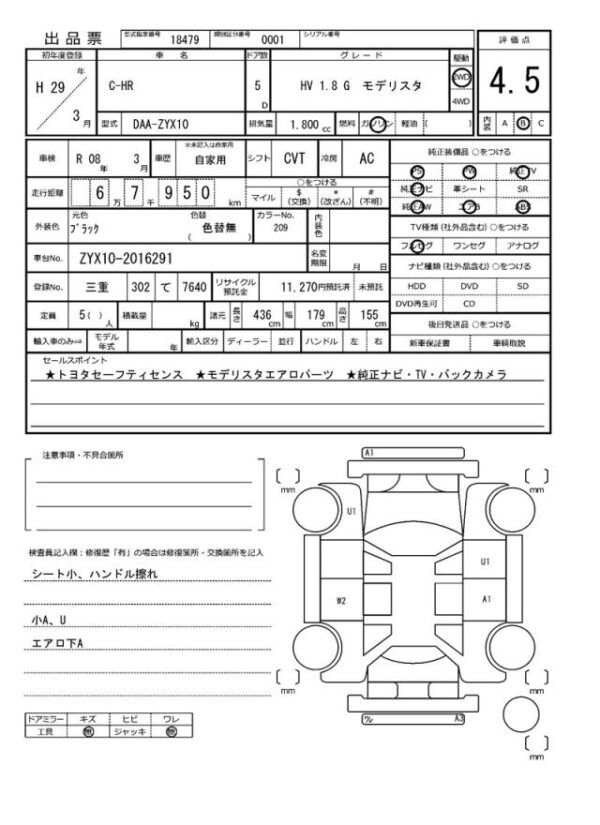 出品票 形式指定番号 18479 類別区分番号 0001 シリアル番号
評価点
初年度登録 車 名 ドア数 グレード 駆動
H 29 年 3 月 C-HR 5 D HV 1.8 G モデリスタ 2WD 4WD
4.5
型式 DAA-ZYX10 排気量 1,800 cc 燃料 ガソリン 軽油 ( )
内装 A B C
車検 R 08 年 3 月 車歴 ※未記入は自家用 自家用 シフト CVT 冷房 AC
純正装備品 ○をつける
PS PW 純正TV
純正ナビ 革シート SR
純正AW エアB ABS
走行距離 6 万 7 千 9 5 0 km ○をつける マイル $ (交換) * (改ざん) # (不明)
外装色 元色 ブラック 色替 ( 色替無 ) カラーNo. 209 内装色
TV種類 (社外品含む) ○をつける
フルセグ ワンセグ アナログ
車台No. ZYX10-2016291 名変期限 月 日
ナビ種類 (社外品含む) ○をつける
HDD DVD SD
DVD再生可 CD
登録No. 三重 302 て 7640 リサイクル預託金 11,270円預託済 未預託
定員 5 ( ) 人 積載量 kg 諸元 長さ 436 cm 幅 179 cm 高さ 155 cm
後日発送品 ○をつける
新車保証書 車輌取説
輸入車のみ⇒ モデル年式 年 輸入区分 ディーラー 並行 ハンドル 左 右
セールスポイント
★トヨタセーフティセンス ★モデリスタエアロパーツ ★純正ナビ・TV・バックカメラ
注意事項・不具合箇所
検査員記入欄:修復歴「有」の場合は修復箇所・交換箇所を記入
シート小、ハンドル擦れ
小A、U
エアロ下A
ドアミラー キズ ヒビ ワレ
工具 無 ジャッキ 無
A1
mm
mm
U1
U1
W2
A1
mm
mm
ワレ A3
mm